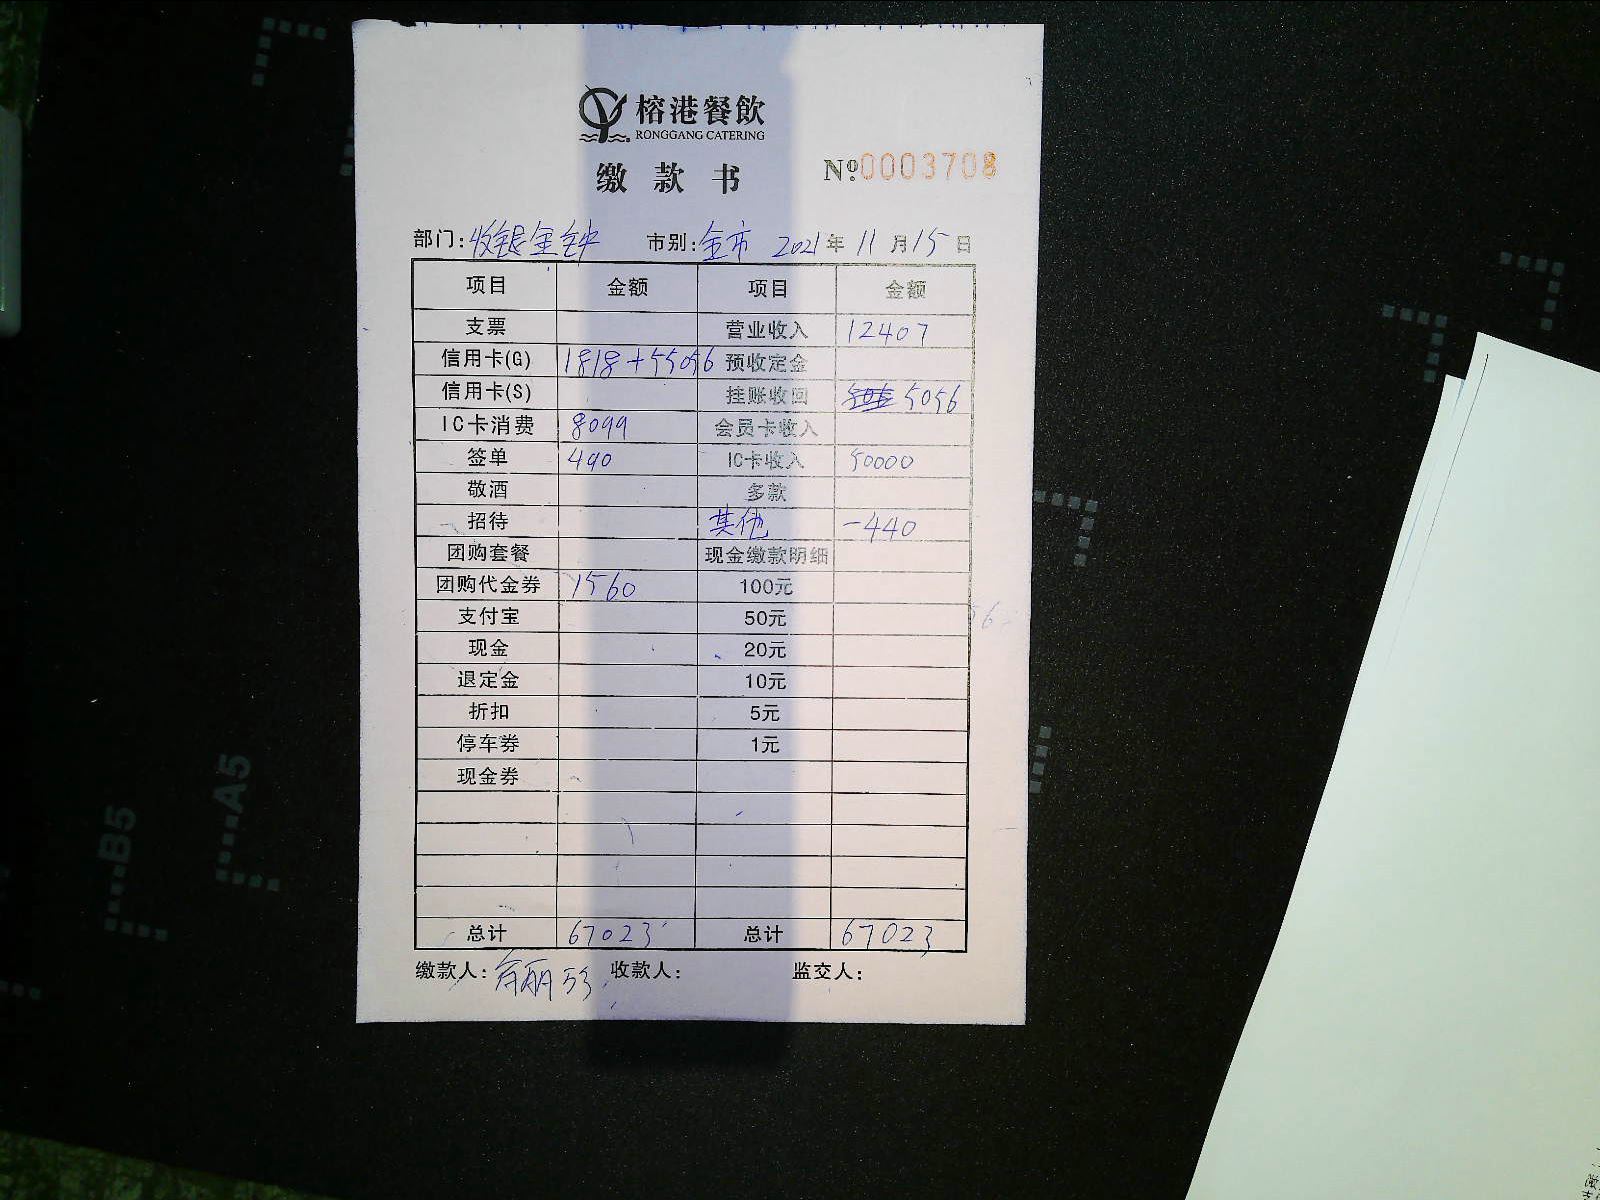 榕港餐飲
RONGGANG CATERING
缴款书
№0003708
部门:收银金钟 市别:全市 2021年11月15日
项目 金额 项目 金额
支票 营业收入 12407
信用卡(G) 1818+55056 预收定金
信用卡(S) 挂账收回 5056
IC卡消费 8099 会员卡收入
签单 490 IC卡收入 50000
敬酒 多款
招待 其他 -440
团购套餐 现金缴款明细
团购代金券 1560 100元
支付宝 50元
现金 20元
退定金 10元
折扣 5元
停车券 1元
现金券
总计 67023 总计 67023
缴款人: 收款人: 监交人:
B5
A5